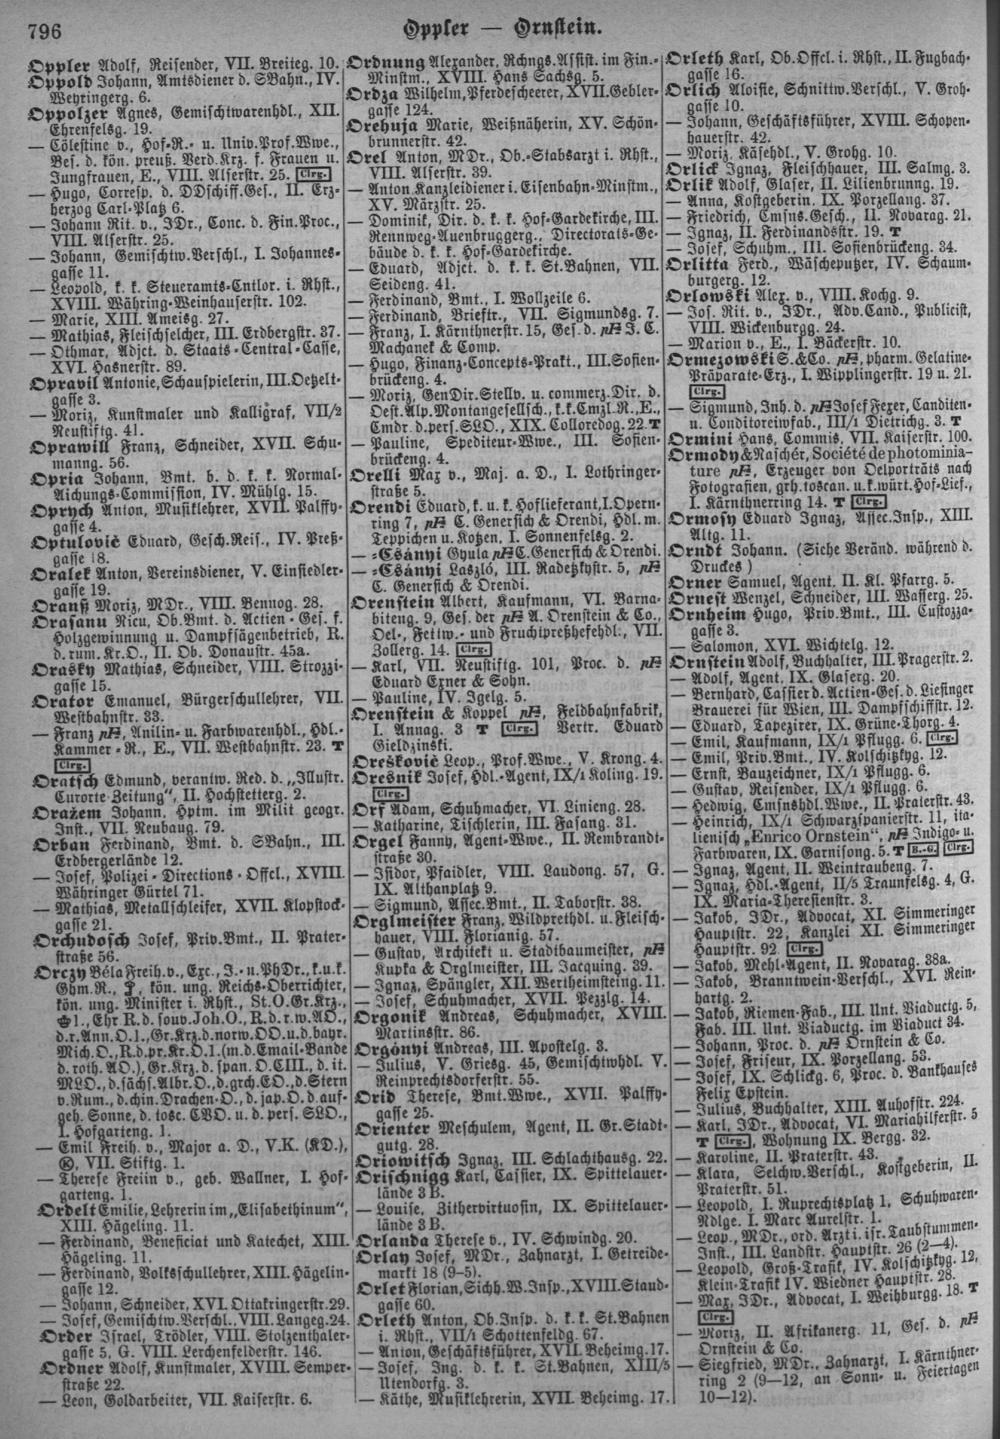 796
Oppler — Ornstein.
Oppler Adolf, Reisender, VII. Breiteg. 10.
Oppold Johann, Amtsdiener d. SBahn., IV.
Weyringerg. 6.
Oppolzer Agnes, Gemischtwarenhdl., XII.
Ehrenfelsg. 19.
— Cölestine v., Hof-R.- u. Univ.Prof.Wwe.,
Bes. d. kön. preuß. Verd.Krz. f. Frauen u.
Jungfrauen, E., VIII. Alserstr. 25. Clrg.
— Hugo, Corresp. d. DDschiff.Ges., II. Erz-
herzog Carl-Platz 6.
— Johann Rit. v., JDr., Conc. d. Fin.Proc.,
VIII. Alserstr. 25.
— Johann, Gemischtw.Verschl., I. Johannes-
gasse 11.
— Leopold, k. k. Steueramts-Cntlor. i. Rhst.,
XVIII. Währing-Weinhauserstr. 102.
— Marie, XIII. Ameisg. 27.
— Mathias, Fleischselcher, III. Erdbergstr. 37.
— Othmar, Adjct. d. Staats-Central-Casse,
XVI. Hasnerstr. 89.
Opravil Antonie, Schauspielerin, III. Oetzelt-
gasse 3.
— Moriz, Kunstmaler und Kalligraf, VII/2
Neustiftg. 41.
Oprawill Franz, Schneider, XVII. Schu-
manng. 56.
Opria Johann, Bmt. b. d. k. k. Normal-
Aichungs-Commission, IV. Mühlg. 15.
Oprych Anton, Musiklehrer, XVII. Palffy-
gasse 4.
Optulović Eduard, Gesch.Reis., IV. Preß-
gasse 18.
Oralek Anton, Vereinsdiener, V. Einsiedler-
gasse 19.
Oransz Moriz, MDr., VIII. Bennog. 28.
Orasanu Nicu, Ob.Bmt. d. Actien-Ges. f.
Holzgewinnung u. Dampfsägenbetrieb, R.
d. rum. Kr.O., II. Ob. Donaustr. 45a.
Orasky Mathias, Schneider, VIII. Strozzi-
gasse 15.
Orator Emanuel, Bürgerschullehrer, VII.
Westbahnstr. 33.
— Franz, Anilin- u. Farbwarenhdl., Hdl.-
Kammer-R., E., VII. Westbahnstr. 23. T
Clrg.
Oratsch Edmund, verantw. Red. d. „Illustr.
Curorte-Zeitung“, II. Hochstetterg. 2.
Oražem Johann, Hptm. im Milit geogr.
Inst., VII. Neubaug. 79.
Orban Ferdinand, Bmt. d. SBahn., III.
Erdbergerlände 12.
— Josef, Polizei-Directions-Offcl., XVIII.
Währinger Gürtel 71.
— Mathias, Metallschleifer, XVII. Klopstock-
gasse 21.
Orchudosch Josef, Priv.Bmt., II. Prater-
straße 56.
Orczy Béla Freih. v., Exc., J.- u. PhDr., k.u.k.
Ghm.R., kön. ung. Reichs-Oberrichter,
kön. ung. Minister i. Rhst., St.O.Gr.Krz.,
1., Ehr R.d. souv.Joh.O., R.d.r.w.AO.,
d.r.Ann.O.1., Gr.Krz.d.norw.OO.u.d.bayr.
Mich.O., R.d.pr.Kr.O.1.(m.d.Email-Bande
d.roth.AO.), Gr.Krz.d. span. O.CIII., d. it.
MLO., d. sächs. Albr.O., d.grch.EO., d.Stern
v.Rum., d. chin. Drachen-O., d. jap.O. d. auf-
geh. Sonne, d. tosc. CVO. u. d. pers. SLO.,
I. Hofgarteng. 1.
— Emil Freih. v., Major a. D., V.K. (KD.),
VII. Stiftg. 1.
— Therese Freiin v., geb. Wallner, I. Hof-
garteng. 1.
Ordelt Emilie, Lehrerin im „Elisabethinum“,
XIII. Hägeling. 11.
— Ferdinand, Beneficiat und Katechet, XIII.
Hägeling. 11.
— Ferdinand, Volksschullehrer, XIII. Hägelin-
gasse 12.
— Johann, Schneider, XVI. Ottakringerstr. 29.
— Josef, Gemischtw. Verschl., VIII. Langeg. 24.
Order Israel, Trödler, VIII. Stolzenthaler-
gasse 5, G. VIII. Lerchenfelderstr. 146.
Ordner Adolf, Kunstmaler, XVIII. Semper-
straße 22.
— Leon, Goldarbeiter, VII. Kaiserstr. 6.
Ordnung Alexander, Rchngs.Assist. im Fin.-
Minstm., XVIII. Hans Sachsg. 5.
Ordza Wilhelm, Pferdescheerer, XVII. Gebler-
gasse 124.
Orehuja Marie, Weißnäherin, XV. Schön-
brunnerstr. 42.
Orel Anton, MDr., Ob.-Stabsarzt i. Rhst.,
VIII. Alserstr. 39.
— Anton, Kanzleidiener i. Eisenbahn-Minstm.,
XV. Märzstr. 25.
— Dominik, Dir. d. k. k. Hof-Gardekirche, III.
Rennweg-Auenbruggerg., Directorats-Ge-
bäude d. k. k. Hof-Gardekirche.
— Eduard, Adjct. d. k. k. St.Bahnen, VII.
Seideng. 41.
— Ferdinand, Bmt., I. Wollzeile 6.
— Ferdinand, Brieftr., VII. Sigmundsg. 7.
— Franz, I. Kärnthnerstr. 15, Ges. d. J. C.
Machanek & Comp.
— Hugo, Finanz-Concepts-Prakt., III. Sofien-
brückeng. 4.
— Moriz, GenDir.Stellv. u. commerz.Dir. d.
Oest.Alp.Montangesellsch., k.k.Cmzl.R., E.,
Cmdr. d. pers. SLO., XIX. Colloredog. 22. T
— Pauline, Spediteur-Wwe., III. Sofien-
brückeng. 4.
Orelli Max v., Maj. a. D., I. Lothringer-
straße 5.
Orendi Eduard, k. u. k. Hoflieferant, I. Opern-
ring 7, C. Genersich & Orendi, Hdl. m.
Teppichen u. Kotzen, I. Sonnenfelsg. 2.
— -Csányi Gyula C. Genersich & Orendi.
— -Csányi Laszló, III. Radetzkystr. 5,
C. Genersich & Orendi.
Orenstein Albert, Kaufmann, VI. Barna-
biteng. 9, Ges. der A. Orenstein & Co.,
Oel-, Fettw.- und Fruchtpreßhefehdl., VII.
Zollerg. 14. Clrg.
— Karl, VII. Neustiftg. 101, Proc. d.
Eduard Exner & Sohn.
— Pauline, IV. Igelg. 5.
Orenstein & Koppel, Feldbahnfabrik,
I. Annag. 3 T Clrg. Vertr. Eduard
Gieldzinski.
Oresković Leop., Prof.Wwe., V. Krong. 4.
Oresnik Josef, Hdl.-Agent, IX/1 Koling. 19.
Clrg.
Orf Adam, Schuhmacher, VI. Linieng. 28.
— Katharine, Tischlerin, III. Fasang. 31.
Orgel Fanny, Agent-Wwe., II. Rembrandt-
straße 30.
— Isidor, Pfaidler, VIII. Laudong. 57, G.
IX. Althanplatz 9.
— Sigmund, Assec.Bmt., II. Taborstr. 38.
Orglmeister Franz, Wildprethdl. u. Fleisch-
hauer, VIII. Florianig. 57.
— Gustav, Architekt u. Stadtbaumeister,
Kupka & Orglmeister, III. Jacquing. 39.
— Ignaz, Spängler, XII. Wertheimsteing. 11.
— Josef, Schuhmacher, XVII. Pezzlg. 14.
Orgonik Andreas, Schuhmacher, XVIII.
Martinsstr. 86.
Orgónyi Andreas, III. Apostelg. 3.
— Julius, V. Griesg. 45, Gemischtwhdl. V.
Reinprechtsdorferstr. 55.
Orid Therese, Bmt.Wwe., XVII. Palffy-
gasse 25.
Orienter Meschulem, Agent, II. Gr. Stadt-
gutg. 28.
Oriowitsch Ignaz, III. Schlachthausg. 22.
Orischnigg Karl, Cassier, IX. Spittelauer-
lände 3 B.
— Louise, Zithervirtuosin, IX. Spittelauer-
lände 3 B.
Orlanda Therese v., IV. Schwindg. 20.
Orlay Josef, MDr., Zahnarzt, I. Getreide-
markt 18 (9–5).
Orlet Florian, Sichh.W.Insp., XVIII. Staud-
gasse 60.
Orleth Anton, Ob.Insp. d. k. k. St.Bahnen
i. Rhst., VII/1 Schottenfeldg. 67.
— Anton, Geschäftsführer, XVII. Beheimg. 17.
— Josef, Ing. d. k. k. St.Bahnen, XIII/5
Utendorfg. 3.
— Käthe, Musiklehrerin, XVII. Beheimg. 17.
Orleth Karl, Ob.Offcl. i. Rhst., II. Fugbach-
gasse 16.
Orlich Aloisie, Schnittw.Verschl., V. Groh-
gasse 10.
— Johann, Geschäftsführer, XVIII. Schopen-
hauerstr. 42.
— Moriz, Käsehdl., V. Grohg. 10.
Orlick Ignaz, Fleischhauer, III. Salmg. 3.
Orlik Adolf, Glaser, II. Lilienbrunng. 19.
— Anna, Kostgeberin, IX. Porzellang. 37.
— Friedrich, Cmsns.Gesch., II. Novarag. 21.
— Ignaz, II. Ferdinandsstr. 19. T
— Josef, Schuhm., III. Sofienbrückeng. 34.
Orlitta Ferd., Wäscheputzer, IV. Schaum-
burgerg. 12.
Orlowski Alex. v., VIII. Kochg. 9.
— Jos. Rit. v., JDr., Adv.Cand., Publicist,
VIII. Wickenburgg. 24.
— Marion v., E., I. Bäckerstr. 10.
Ormezowski S. & Co., pharm. Gelatine-
Präparate-Erz., I. Wipplingerstr. 19 u. 21.
Clrg.
— Sigmund, Inh. d. Josef Fexer, Canditen-
u. Conditoreiwfab., III/1 Dietrichg. 3. T
Ormini Hans, Commis, VII. Kaiserstr. 100.
Ormody & Raschér, Société de photominia-
ture, Erzeuger von Oelporträts nach
Fotografien, grh. toscan. u. k. würt. Hof-Lief.,
I. Kärnthnerring 14. T Clrg.
Ormosy Eduard Ignaz, Assec.Insp., XIII.
Altg. 11.
Orndt Johann. (Siehe Veränd. während d.
Druckes)
Orner Samuel, Agent, II. Kl. Pfarrg. 5.
Ornest Wenzel, Schneider, III. Wasserg. 25.
Ornheim Hugo, Priv.Bmt., III. Custozza-
gasse 3.
— Salomon, XVI. Wichtelg. 12.
Ornstein Adolf, Buchhalter, III. Pragerstr. 2.
— Adolf, Agent, IX. Glaserg. 20.
— Bernhard, Cassier d. Actien-Ges. d. Liesinger
Brauerei für Wien, III. Dampfschiffstr. 12.
— Eduard, Tapezirer, IX. Grüne-Thorg. 4.
— Emil, Kaufmann, IX/1 Pflugg. 6. Clrg.
— Emil, Priv.Bmt., IV. Kolschitzkyg. 12.
— Ernst, Bauzeichner, IX/1 Pflugg. 6.
— Gustav, Reisender, IX/1 Pflugg. 6.
— Hedwig, Cmsnshdl.Wwe., II. Praterstr. 43.
— Heinrich, IX/1 Schwarzspanierstr. 11, ita-
lienisch „Enrico Ornstein“, Indigo- u.
Farbwaren, IX. Garnisong. 5. T B.-G. Clrg.
— Ignaz, Agent, II. Weintraubeng. 7.
— Ignaz, Hdl.-Agent, II/5 Traunfelsg. 4, G.
IX. Maria-Theresienstr. 3.
— Jakob, JDr., Advocat, XI. Simmeringer
Hauptstr. 22, Kanzlei XI. Simmeringer
Hauptstr. 92 Clrg.
— Jakob, Mehl-Agent, II. Novarag. 38a.
— Jakob, Branntwein-Verschl., XVI. Rein-
hartg. 2.
— Jakob, Riemen-Fab., III. Unt. Viaductg. 5,
Fab. III. Unt. Viaductg. im Viaduct 34.
— Johann, Proc. d. Ornstein & Co.
— Josef, Friseur, IX. Porzellang. 53.
— Josef, IX. Schlickg. 6, Proc. d. Bankhauses
Felix Epstein.
— Julius, Buchhalter, XIII. Auhofstr. 224.
— Karl, JDr., Advocat, VI. Mariahilferstr. 5
T Clrg., Wohnung IX. Bergg. 32.
— Karoline, II. Praterstr. 43.
— Klara, Selchw.Verschl., Kostgeberin, II.
Praterstr. 51.
— Leopold, I. Ruprechtsplatz 1, Schuhwaren-
Ndlge. I. Marc Aurelstr. 1.
— Leop., MDr., ord. Arzt i. isr. Taubstummen-
Inst., III. Landstr. Hauptstr. 26 (2–4).
— Leopold, Groß-Trafik, IV. Kolschitzkyg. 12,
Klein-Trafik IV. Wiedner Hauptstr. 28.
— Max, JDr., Advocat, I. Weihburgg. 18. T
Clrg.
— Moriz, II. Afrikanerg. 11, Ges. d.
Ornstein & Co.
— Siegfried, MDr., Zahnarzt, I. Kärnthner-
ring 2 (9–12, an Sonn- u. Feiertagen
10–12).